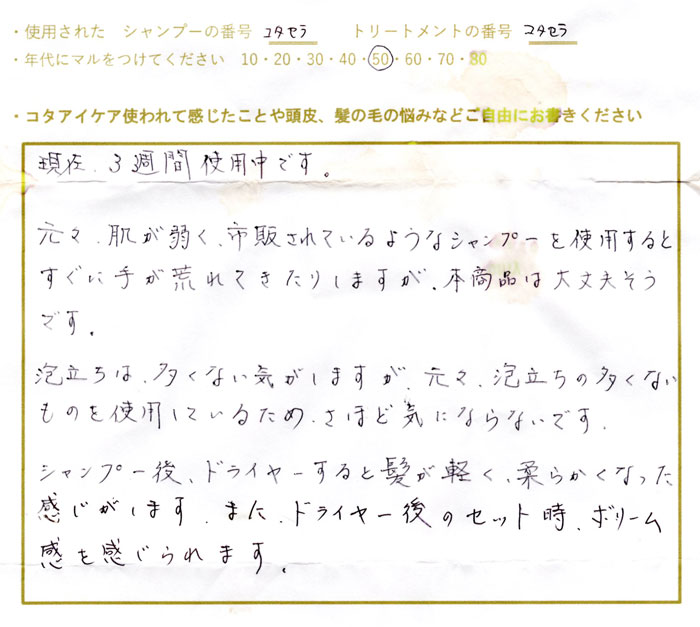 ・使用された シャンプーの番号 コタセラ トリートメントの番号 コタセラ
・年代にマルをつけてください 10・20・30・40・50・60・70・80
・コタアイケア使われて感じたことや頭皮、髪の毛の悩みなどご自由にお書きください
現在、3週間使用中です。
元々、肌が弱く、市販されているようなシャンプーを使用すると
すぐに手が荒れてきたりしますが、本商品は大丈夫そう
です。
泡立ちは、多くない気がしますが、元々、泡立ちの多くない
ものを使用しているため、さほど気にならないです。
シャンプー後、ドライヤーすると髪が軽く、柔らかくなった
感じがします。また、ドライヤー後のセット時、ボリーム
感を感じられます。